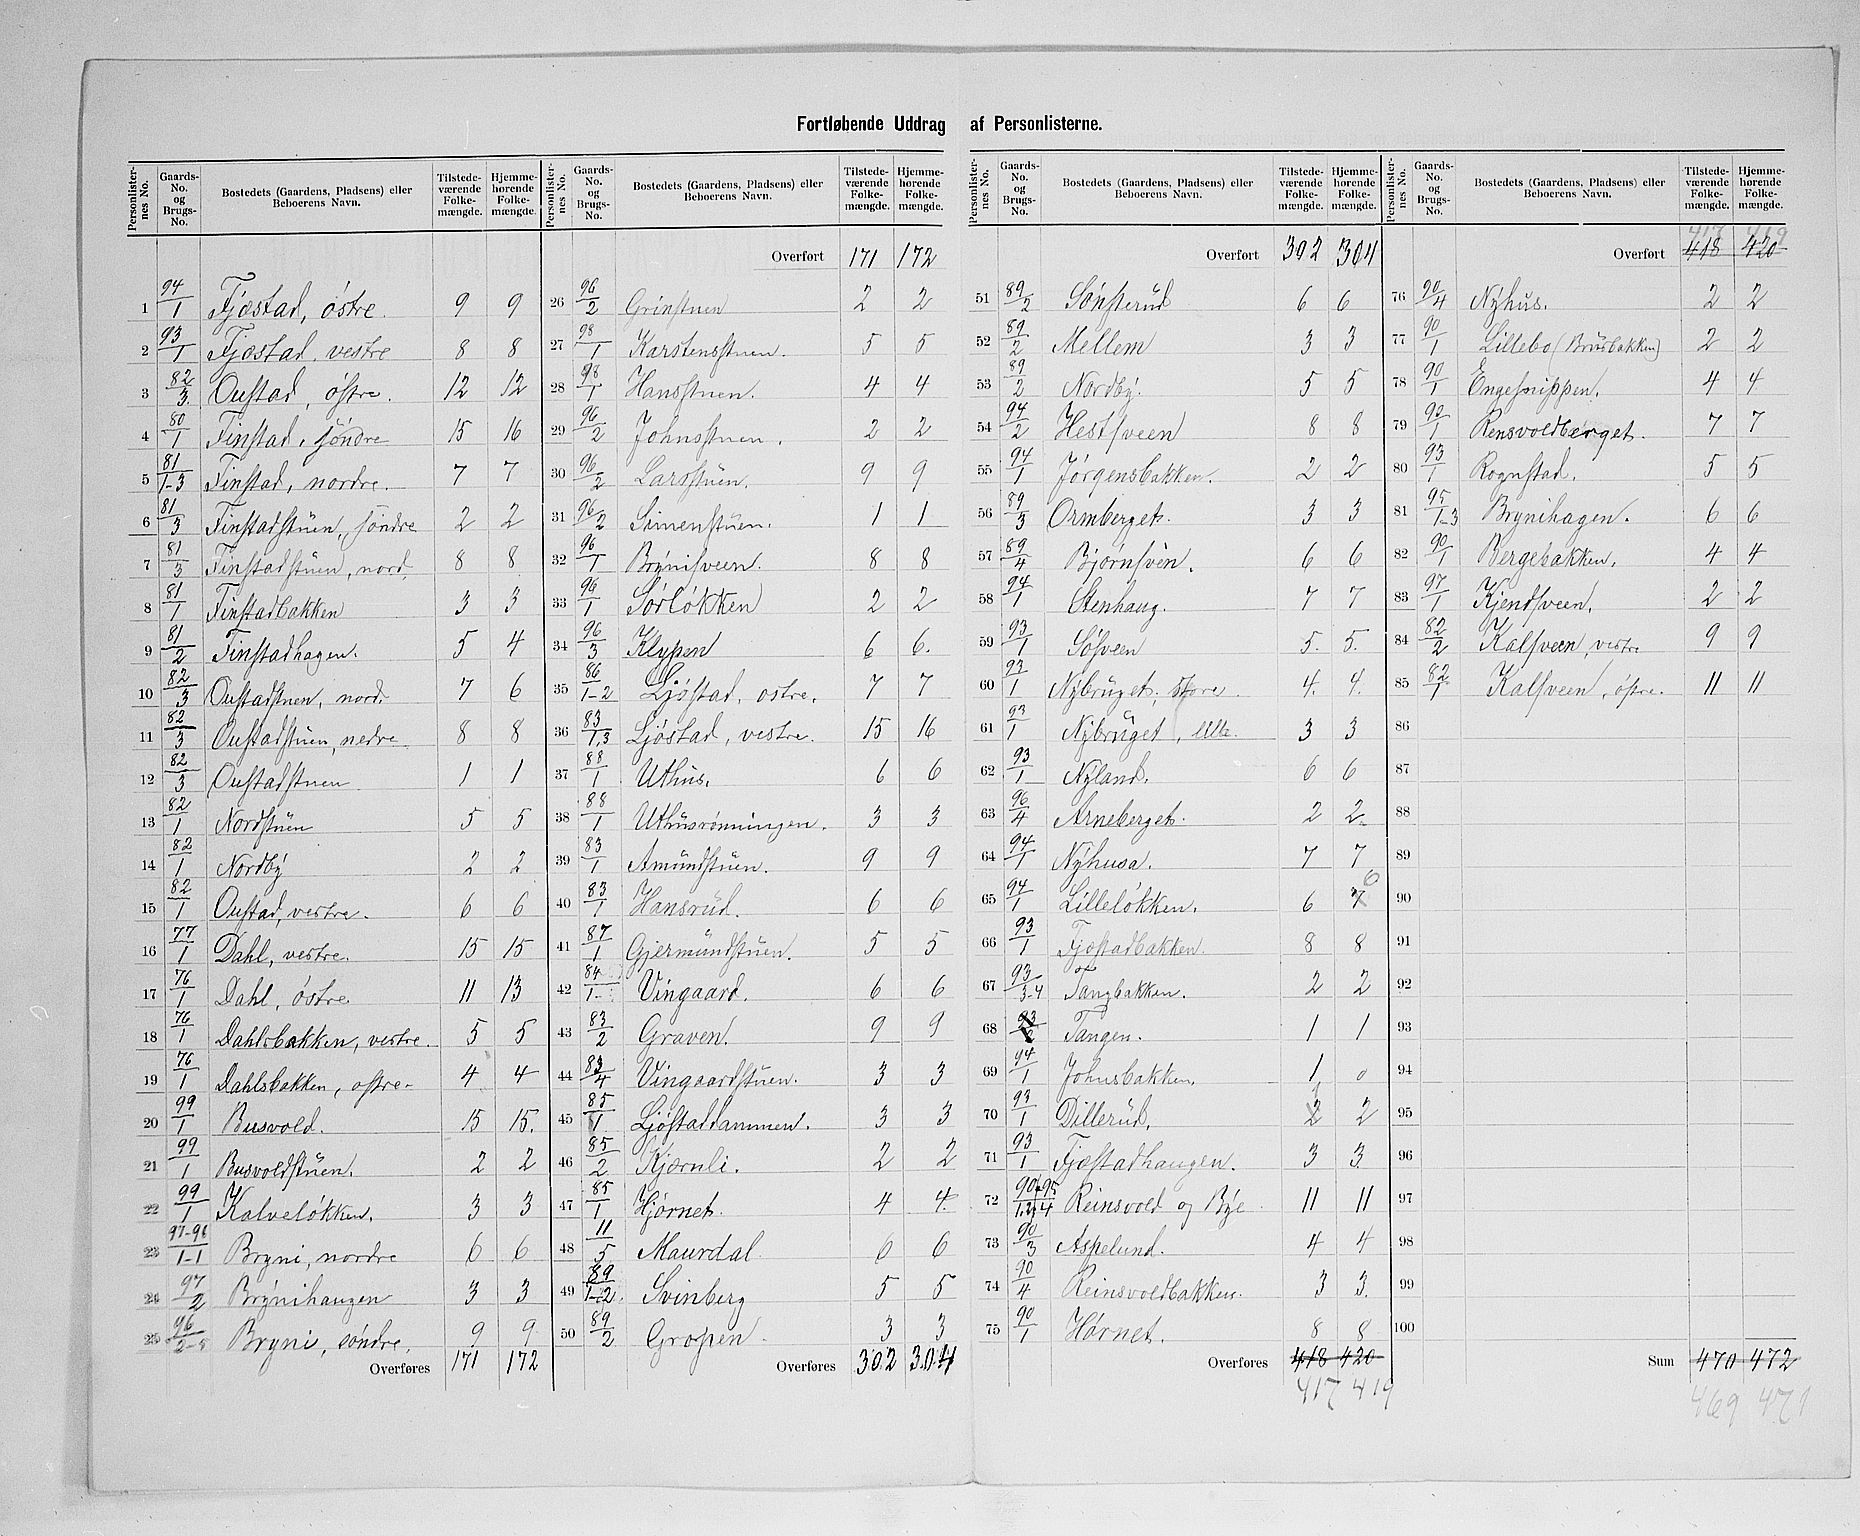 Fortløbende Uddrag af Personlisterne.
Personlisternes No. Gaards-No. og Brugs-No. Bostedets (Gaardens, Pladsens) eller Beboerens Navn. Tilstedeværende Folkemængde. Hjemmehørende Folkemængde.
1 94/1 Fjæstad, østre 9 9
2 93/1 Fjæstad, vestre 8 8
3 82/3 Oustad, østre. 12 12
4 80/1 Finstad, söndre 15 16
5 81/1-3 Finstad, nordre. 7 7
6 81/3 Finstadstuen, söndre 2 2
7 81/3 Finstadstuen, nord. 8 8
8 81/1 Finstadbakken 3 3
9 81/2 Finstadhagen. 5 4
10 82/3 Oustadstuen, nord. 7 6
11 82/3 Oustadstuen, nedre 8 8
12 82/3 Oustadstuen 1 1
13 82/1 Nordstuen 5 5
14 82/1 Nordby 2 2
15 82/1 Oustad, vestre. 6 6
16 77/1 Dahl, vestre. 15 15
17 76/1 Dahl, östre 11 13
18 76/1 Dahlsbakken, vestre. 5 5
19 76/1 Dahlsbakken, østre. 4 4
20 99/1 Busvold. 15 15.
21 99/1 Busvoldstuen. 2 2
22 99/1 Kalveløkken. 3 3
23 97-96/1-1 Bryni, nordre 6 6
24 97/2 Brynihaugen 3 3
25 96/2-5 Bryni, søndre. 9 9
Overføres 171 172
Personlisternes No. Gaards-No. og Brugs-No. Bostedets (Gaardens, Pladsens) eller Beboerens Navn. Tilstedeværende Folkemængde. Hjemmehørende Folkemængde.
Overført 171 172
26 96/2 Grinstuen 2 2
27 98/1 Karstensstuen. 5 5
28 98/1 Hansstuen. 4 4
29 96/2 Johnsstuen. 2 2
30 96/2 Larsstuen. 9 9
31 96/2 Simenstuen. 1 1
32 96/1 Brynisveen. 8 8
33 96/1 Sörlökken 2 2
34 96/3 Klypen 6 6.
35 86/1-2 Ljöstad, østre. 7 7
36 83/1,3 Ljöstad, vestre. 15 16
37 88/1 Uthus. 6 6
38 88/1 Uthusrønningen. 3 3
39 83/1 Amundstuen. 9 9
40 83/1 Hansrud. 6 6
41 87/1 Gjermundstuen. 5 5
42 84/1- Vingaard. 6 6
43 83/2 Graven. 9 9
44 83/4 Vingaardstuen. 3 3
45 85/1 Ljöstaddammen. 3 3
46 85/2 Kjærnli. 2 2
47 85/1 Hjørnet. 4 4.
48 11/5 Maurdal 6 6
49 89/1-2. Svinberg 5 5
50 89/2 Gropen. 3 3
Overføres 302 304
Personlisternes No. Gaards-No. og Brugs-No. Bostedets (Gaardens, Pladsens) eller Beboerens Navn. Tilstedeværende Folkemængde. Hjemmehørende Folkemængde.
Overført 302 304
51 89/2 Sönsterud 6 6
52 89/2 Mellem 3 3
53 89/2 Nordby. 5 5
54 94/2 Hestsveen 8 8
55 94/1 Jørgensbakken. 2 2
56 89/3 Ormberget. 3 3
57 89/4 Bjørnsven. 6 6
58 94/1 Stenhaug. 7 7
59 93/1 Søsveen 5. 5.
60 93/1 Nybruget, store. 4. 4.
61 93/1 Nybruget, lille. 3 3
62 93/1 Nyland. 6 6
63 96/4 Arneberget. 2 2.
64 94/1 Nyhusa. 7 7
65 94/1 Lilleløkken. 6 7 6
66 93/1 Fjæstadbakken. 8 8
67 93/3-4 Tangbakken. 2 2
68 93/2 Tangen. 1 1
69 94/1 Johnsbakken. 1 0
70 93/1 Dillerud. 2 2
71 93/1 Fjæstadhaugen. 3 3.
72 90,95/1.2,4 Reinsvold og Bye. 11 11
73 90/3 Aspelund. 4 4
74 90/4 Reinsvoldbakken. 3 3.
75 90/1 Hørnet. 8 8
Overføres 418 420
417 419
Personlisternes No. Gaards-No. og Brugs-No. Bostedets (Gaardens, Pladsens) eller Beboerens Navn. Tilstedeværende Folkemængde. Hjemmehørende Folkemængde.
417 419
Overført 418 420
76 90/4 Nyhus. 2 2
77 90/1 Lillebo (Brusbakken) 2 2
78 90/1 Engesnippen. 4 4
79 90/1 Rensvoldberget. 7 7
80 93/1 Rognstad. 5 5
81 95/1-3 Brynihagen. 6 6
82 90/1 Bergebakken. 4 4
83 97/1 Kjendsveen. 2 2
84 82/2 Kalsveen, vestre 9 9
85 82/1 Kalsveen, østre. 11 11
86
87
88
89
90
91
92
93
94
95
96
97
98
99
100
Sum 470 472
469 471